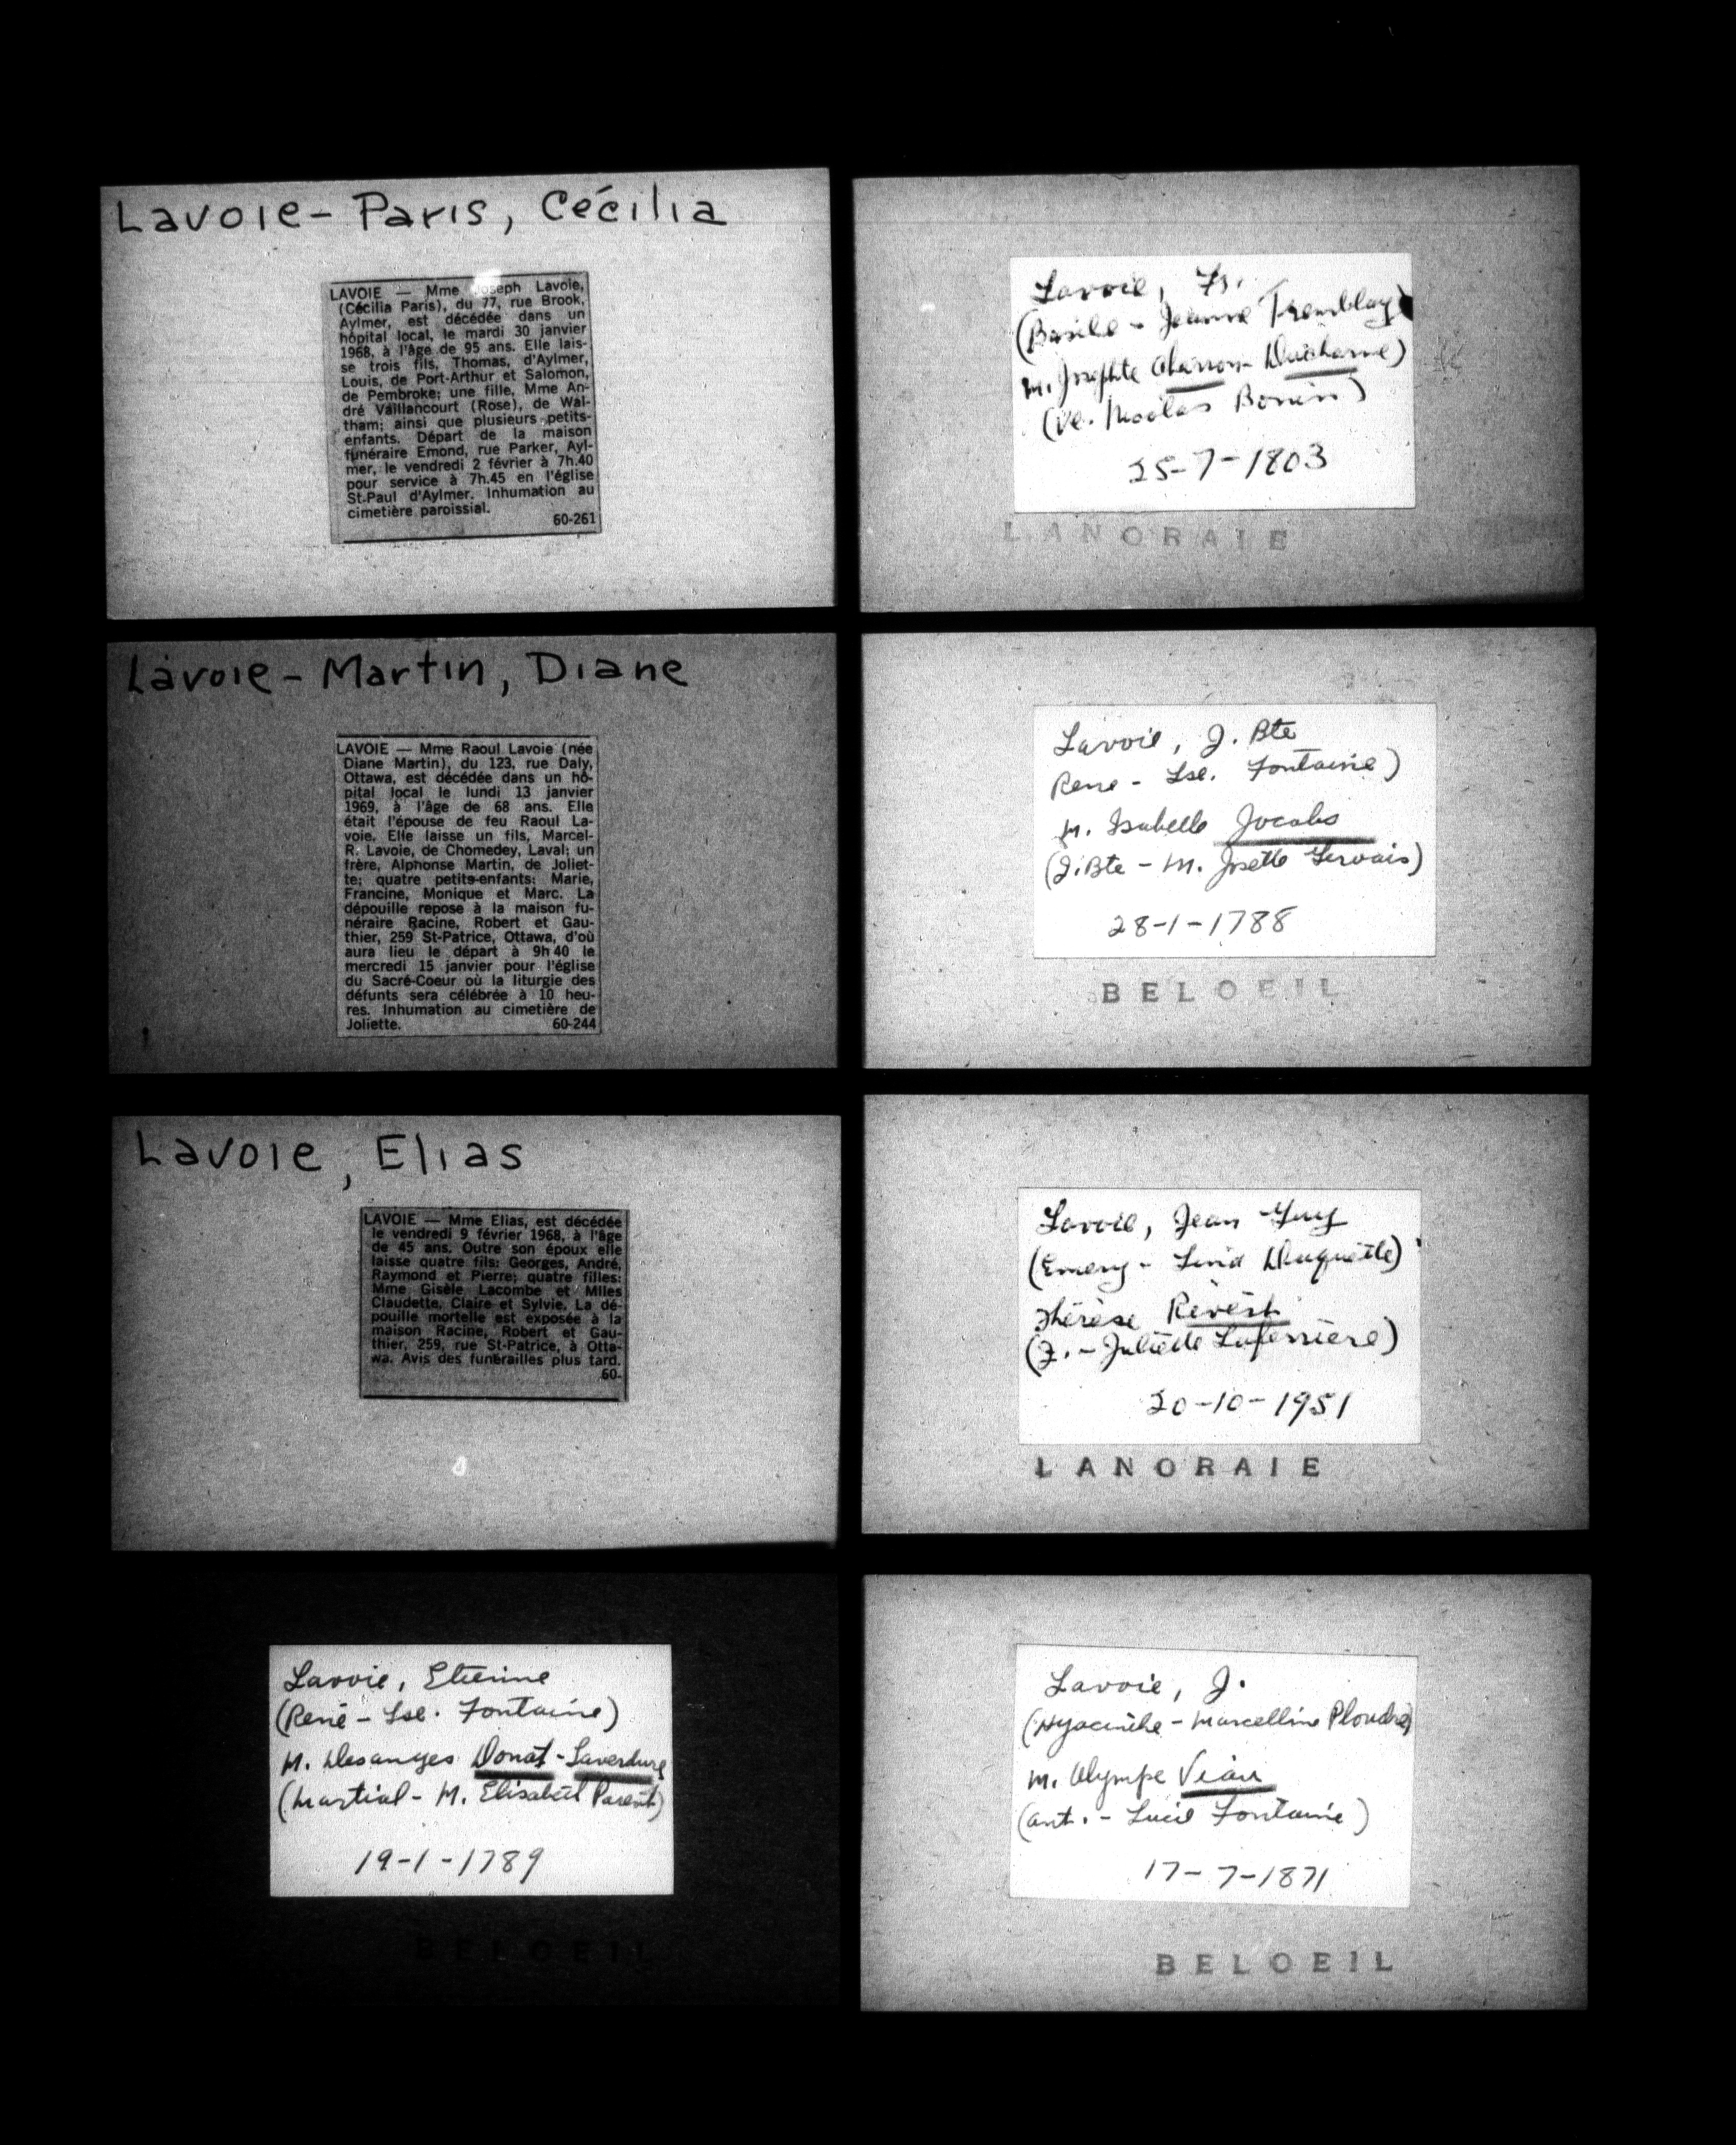 Lavoie-Paris, Cécilia
LAVOIE — Mme Joseph Lavoie,
(Cécilia Paris), du 77, rue Brook,
Aylmer, est décédée dans un
hôpital local, le mardi 30 janvier
1968, à l'âge de 95 ans. Elle lais-
se trois fils, Thomas, d'Aylmer,
Louis, de Port-Arthur et Salomon,
de Pembroke; une fille, Mme An-
dré Vaillancourt (Rose), de Wal-
tham; ainsi que plusieurs petits-
enfants. Départ de la maison
funéraire Emond, rue Parker, Ayl-
mer, le vendredi 2 février à 7h.40
pour service à 7h.45 en l'église
St-Paul d'Aylmer. Inhumation au
cimetière paroissial.
60-261
Lavoie-Martin, Diane
LAVOIE — Mme Raoul Lavoie (née
Diane Martin), du 123, rue Daly,
Ottawa, est décédée dans un hô-
pital local le lundi 13 janvier
1969, à l'âge de 68 ans. Elle
était l'épouse de feu Raoul La-
voie. Elle laisse un fils, Marcel-
R. Lavoie, de Chomedey, Laval; un
frère, Alphonse Martin, de Joliet-
te; quatre petits-enfants: Marie,
Francine, Monique et Marc. La
dépouille repose à la maison fu-
néraire Racine, Robert et Gau-
thier, 259 St-Patrice, Ottawa, d'où
aura lieu le départ à 9h 40 le
mercredi 15 janvier pour l'église
du Sacré-Coeur où la liturgie des
défunts sera célébrée à 10 heu-
res. Inhumation au cimetière de
Joliette. 60-244
Lavoie, Elias
LAVOIE — Mme Elias, est décédée
le vendredi 9 février 1968, à l'âge
de 45 ans. Outre son époux elle
laisse quatre fils: Georges, André,
Raymond et Pierre; quatre filles:
Mme Gisèle Lacombe et Mlles
Claudette, Claire et Sylvie. La dé-
pouille mortelle est exposée à la
maison Racine, Robert et Gau-
thier, 259, rue St-Patrice, à Otta-
wa. Avis des funérailles plus tard.
60-
Lavoie, Etienne
(René - Lse. Fontaine)
M. Desanges Donat-Laverdure
(Martial - M. Elisabeth Parent)
19-1-1789
BELOEIL
Lavoie, Fs.
(Basile - Jeanne Tremblay)
M. Josephte Charron-Ducharme)
(Ve. Nicolas Bonin)
25-7-1803
LANORAIE
Lavoie, J. Bte
Rene - Lse. Fontaine)
M. Isabelle Jocabs
(J.Bte - M. Josette Gervais)
28-1-1788
BELOEIL
Lavoie, Jean Guy
(Emery - Lina Duquette)
Thérèse Revest
(J. - Juliette Laferrière)
20-10-1951
LANORAIE
Lavoie, J.
(Hyacinthe - Marcelline Ploudre)
M. Olympe Viau
(Ant. - Lucie Fontaine)
17-7-1871
BELOEIL